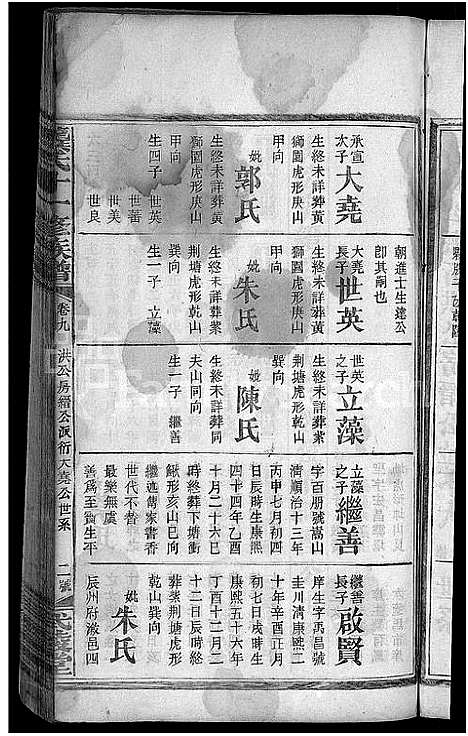 承宣
次子 大堯
生終未詳葬黃
獅園虎形庚山
甲向
妣 郭氏
生終未詳葬黃
獅園虎形庚山
甲向
生四子 世英
世蕃
世美
世良
朝進士生達公
卽其嗣也
大堯
長子 世英
生終未詳葬黃
獅園虎形庚山
甲向
妣 朱氏
生終未詳葬紫
荆塘虎形乾山
巽向
生一子 立藻
世英
之子 立藻
生終未詳葬紫
荆塘虎形乾山
巽向
妣 陳氏
生終未詳葬同
夫山同向
生一子 繼善
立藻
之子 繼善
字百朋號嵩山
順治十三年
丙申七月初四
日辰時生康熙
四十四年乙酉
十月二十六巳
時終葬下塘衝
鰍形亥山巳向
繼迹傳家書香
世代不替
最樂無虞
善爲至寶生平
繼善
長子 啟賢
庠生字禹昌號
圭川清康熙二
十年辛酉正月
初七日戌時生
康熙五十六年
丁酉十二月
十二日辰時終
葬紫荆塘虎形
乾山巽向
妣 朱氏
辰州府漵邑四
氏十一修族譜
卷九
洪公房縉公派衍大堯公世系
二號